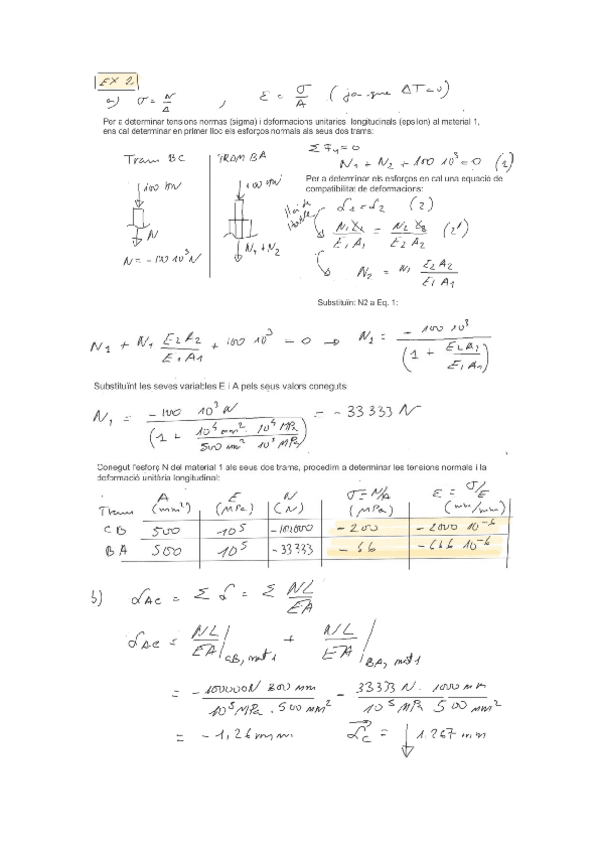 EX 2.
a) σ = N/A , ε = σ/A (ja que ΔT=0)
Per a determinar tensions normas (sigma) i deformacions unitaries longitudinals (epsilon) al material 1,
ens cal determinar en primer lloc els esforços normals als seus dos trams:
Tram BC
TRAM BA
100 kN
N
N = -100 10³ N
100 kN
N₁ + N₂
Σ Fy = 0
N₁ + N₂ + 100 10³ = 0 (1)
Per a determinar els esforços en cal una equacio de
compatibilitat de deformacions:
llei de
δ₁ = δ₂ (2)
N₁L₁/E₁A₁ = N₂L₂/E₂A₂ (2')
N₂ = N₁ E₂A₂/E₁A₁
Substituïn: N2 a Eq. 1:
N₁ + N₁ E₂A₂/E₁A₁ + 100 10³ = 0 → N₁ = -100 10³/(1 + E₂A₂/E₁A₁)
Substituïnt les seves variables E i A pels seus valors coneguts:
N₁ = -100 10³ N/(1 + 10⁴ mm² 10⁴ MPa/500 mm² 10⁵ MPa) = -33333 N
Conegut l'esforç N del material 1 als seus dos trams, procedim a determinar les tensions normals i la
deformació unitària longitudinal:
Tram A (mm²) E (MPa) N (N) σ=N/A (MPa) ε = σ/E (mm/mm)
CB 500 10⁵ -100000 -200 -2000 10⁻⁶
BA 500 10⁵ -33333 -66 -666 10⁻⁶
b) δAC = Σ δ = Σ NL/EA
δAC = NL/EA|CB, mat 1 + NL/EA|BA, mat 1
= -100000N 300 mm/10⁵ MPa · 500 mm² - 33333 N · 1000 mm/10⁵ MPa 500 mm²
= -1,26 mm δC = ↓ 1.267 mm